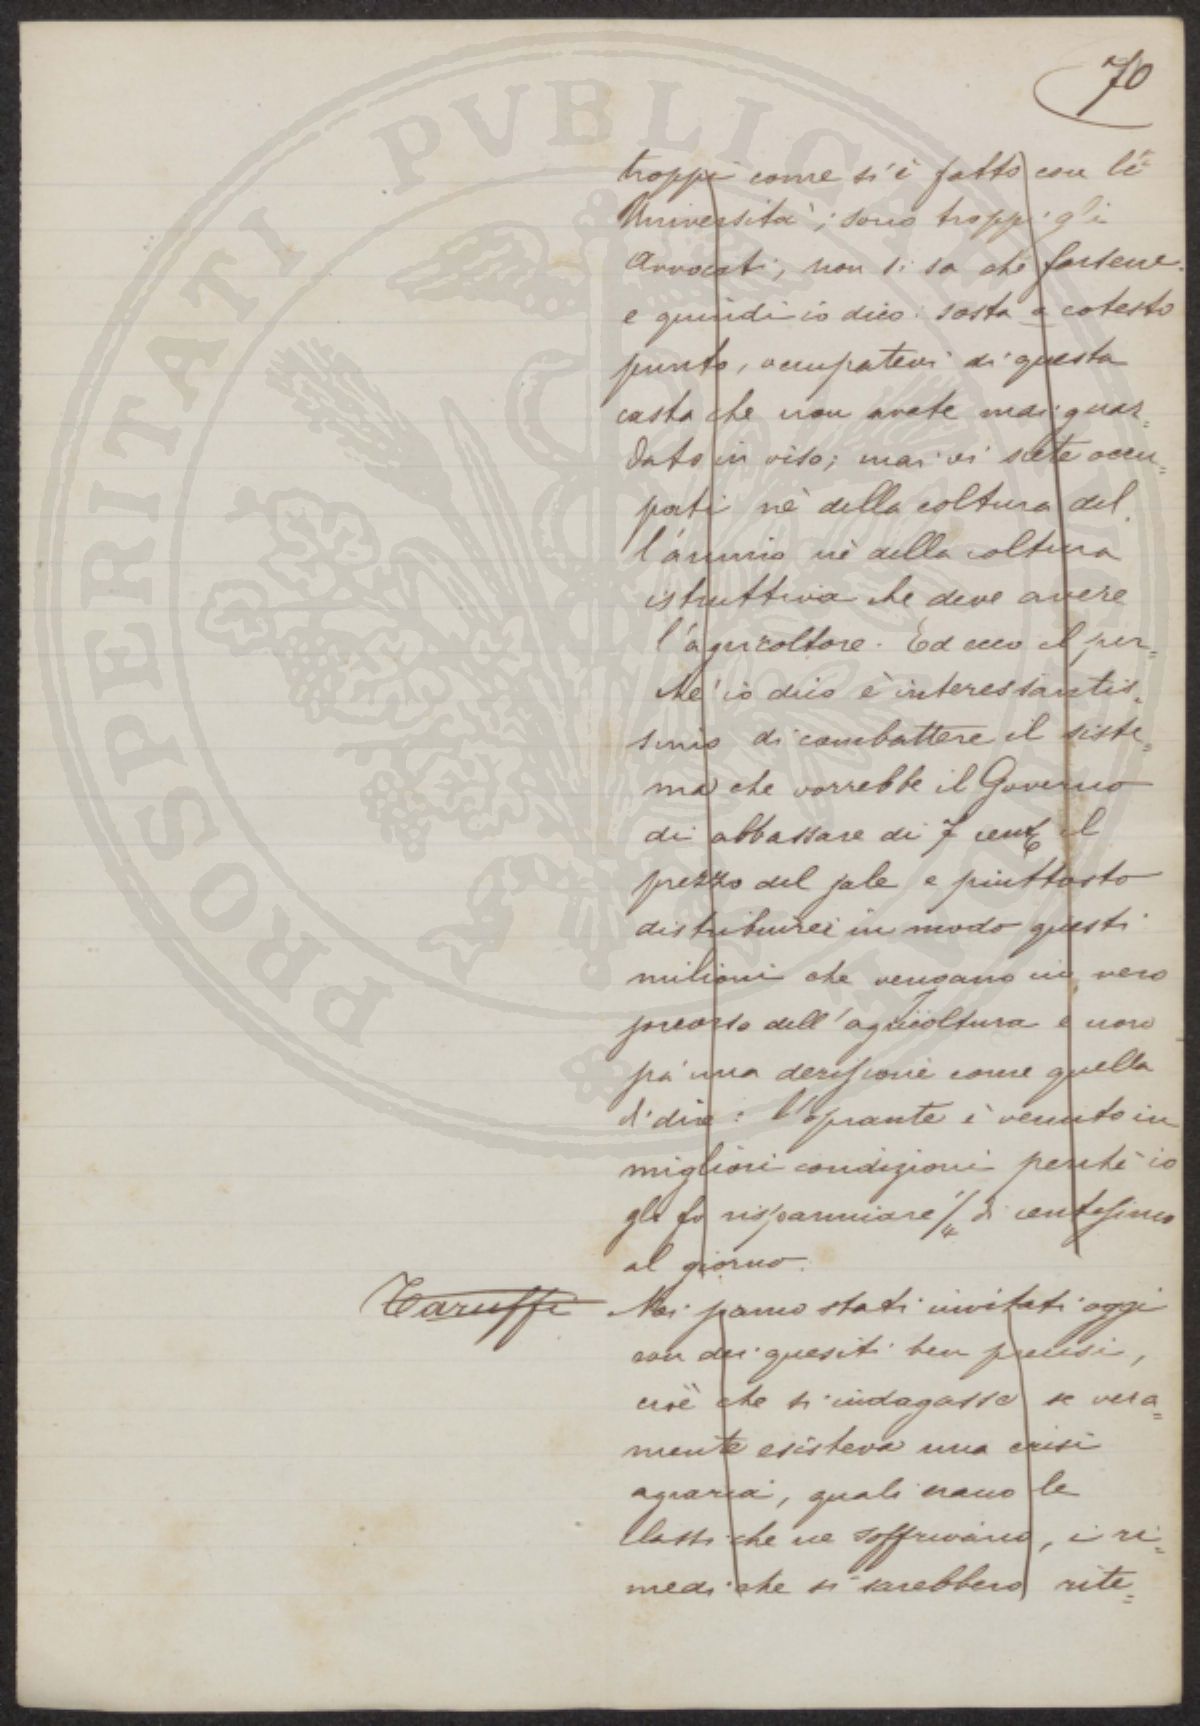 70
troppi come si è fatto con le
Università; sono troppi gli
Avvocati, non si sa che farsene
e quindi io dico: sosta a cotesto
punto, occupatevi di questa
casta che non avete mai guar=
dato in viso; mai vi siete occu=
pati nè della coltura del
l'animo nè della coltura
istruttiva che deve avere
l'agricoltore. Ed ecco il per=
chè io dico è interessantis=
simo di combattere il siste=
ma che vorrebbe il Governo
di abbassare di 7 cent il
prezzo del sale e piuttosto
distribuirei in modo questi
milioni che vengano in vero
soccorso dell'agricoltura e non
sia una derisione come quella
di dire: l'oprante è venuto in
migliori condizioni perchè io
gli fo risparmiare 1/4 di centesimo
al giorno.
Taruffi Noi siamo stati invitati oggi
con dei quesiti ben precisi,
cioè che si indagasse se vera=
mente esisteva una crisi
agraria, quali erano le
classi che ne soffrivano, i ri=
medi che si sarebbero rite=
PROSPERITATI PVBLICAE